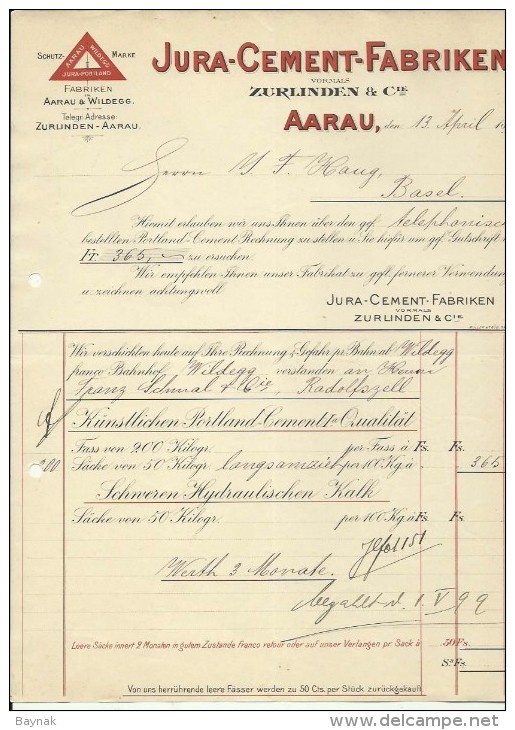 SCHUTZ- MARKE
AARAU WILDEGG
JURA-PORTLAND
FABRIKEN
IN
AARAU & WILDEGG.
Telegr.-Adresse
ZURLINDEN-AARAU.
JURA-CEMENT-FABRIKEN
VORMALS
ZURLINDEN & CIE
AARAU, den 13 April 18
Herrn J. F. Haug,
Basel.
Hiemit erlauben wir uns Ihnen über den ggf. telephonisch
bestellten Portland-Cement Rechnung zu stellen u. Sie hiefür um ggf. Gutschrift
Fr. 365,- zu ersuchen.
Wir empfehlen Ihnen unser Fabrikat zu gefl. fernerer Verwendung
u. zeichnen achtungsvoll
JURA-CEMENT-FABRIKEN
VORMALS
ZURLINDEN & CIE.
Wir verschickten heute auf Ihre Rechnung & Gefahr pr. Bahn ab Wildegg
franco Bahnhof Wildegg verstanden an Herrn
Franz Schmal & Cie, Radolfszell
Künstlichen Portland-Cement Ia Qualität
Fass von 200 Kilogr. per Fass à Fs.
200 Säcke von 50 Kilogr. langsamzieh per 100 Kg. à Fs. 365
Schweren Hydraulischen Kalk
Säcke von 50 Kilogr. per 100 Kg. à Fs.
Werth 3 Monate.
bezahlt d. 1. V 99
Leere Säcke innert 2 Monaten in gutem Zustande Franco retour oder auf unser Verlangen pr. Sack à 50 Fs.
Sa Fs.
Von uns herrührende leere Fässer werden zu 50 Cts. per Stück zurückgekauft.
Baynak
delcampe.net